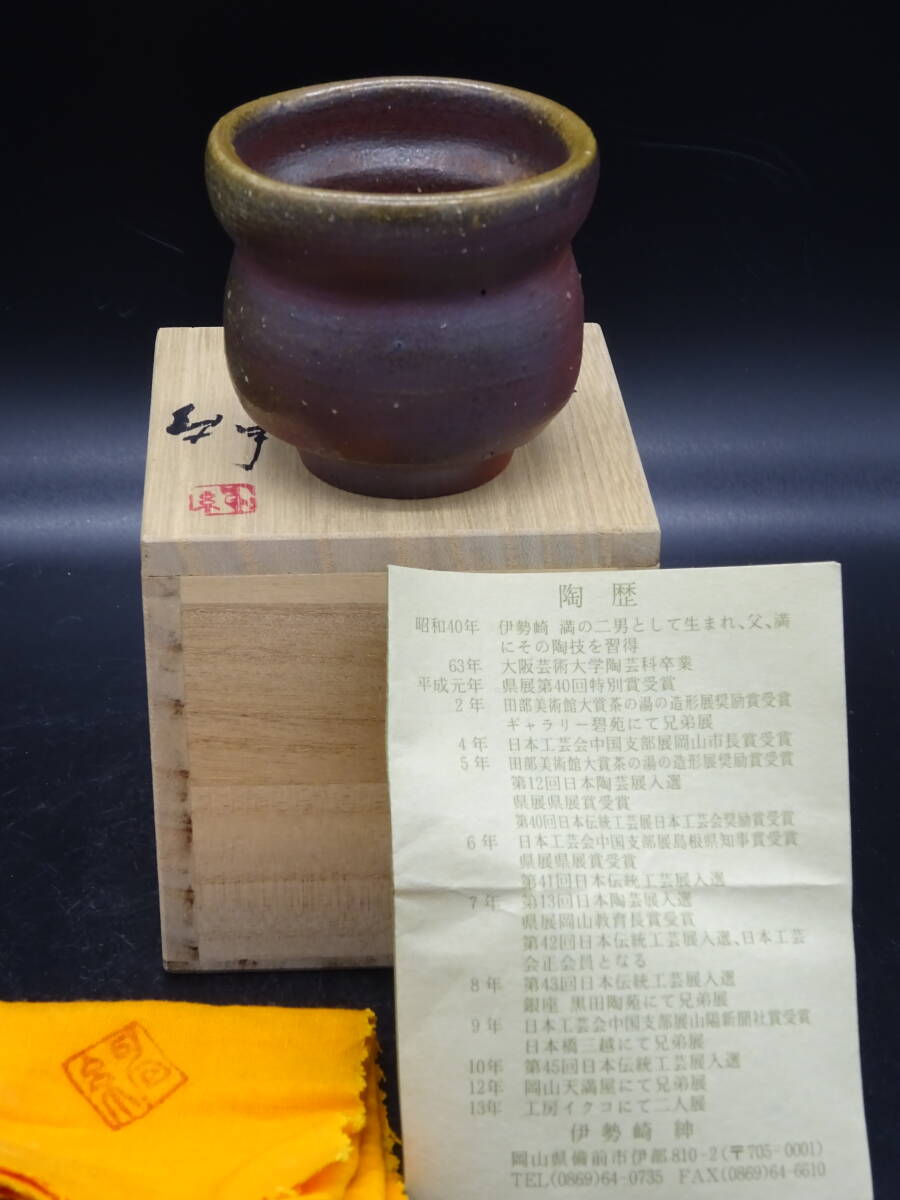 陶歴
昭和40年 伊勢崎 満の二男として生まれ、父、満
にその陶技を習得
63年 大阪芸術大学陶芸科卒業
平成元年 県展第40回特別賞受賞
2年 田部美術館大賞茶の湯の造形展奨励賞受賞
ギャラリー碧苑にて兄弟展
4年 日本工芸会中国支部展岡山市長賞受賞
5年 田部美術館大賞茶の湯の造形展奨励賞受賞
第12回日本陶芸展入選
県展県展賞受賞
第40回日本伝統工芸展日本工芸会奨励賞受賞
6年 日本工芸会中国支部展島根県知事賞受賞
県展県展賞受賞
第41回日本伝統工芸展入選
7年 第13回日本陶芸展入選
県展岡山教育長賞受賞
第42回日本伝統工芸展入選、日本工芸
会正会員となる
8年 第43回日本伝統工芸展入選
銀座 黒田陶苑にて兄弟展
9年 日本工芸会中国支部展山陽新聞社賞受賞
日本橋三越にて兄弟展
10年 第45回日本伝統工芸展入選
12年 岡山天満屋にて兄弟展
13年 工房イクコにて二人展
伊勢崎 紳
岡山県備前市伊部810-2(〒705-0001)
TEL(0869)64-0735 FAX(0869)64-6610